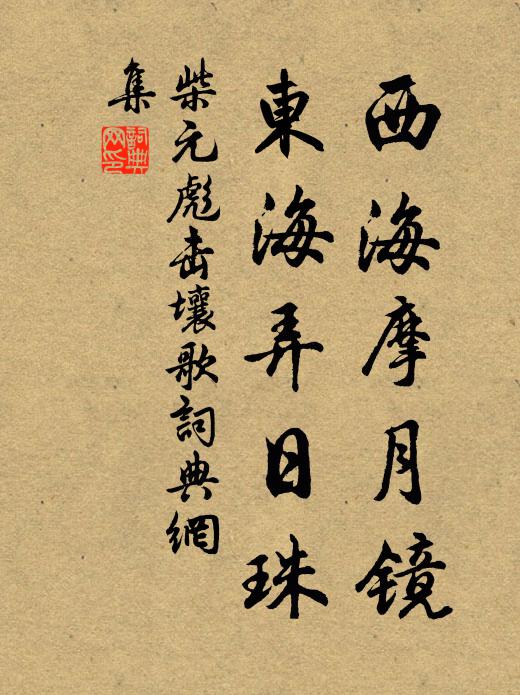 西海摩月镜
東海弄日珠
柴元彪击壤歌詞典網
集
詞典网印